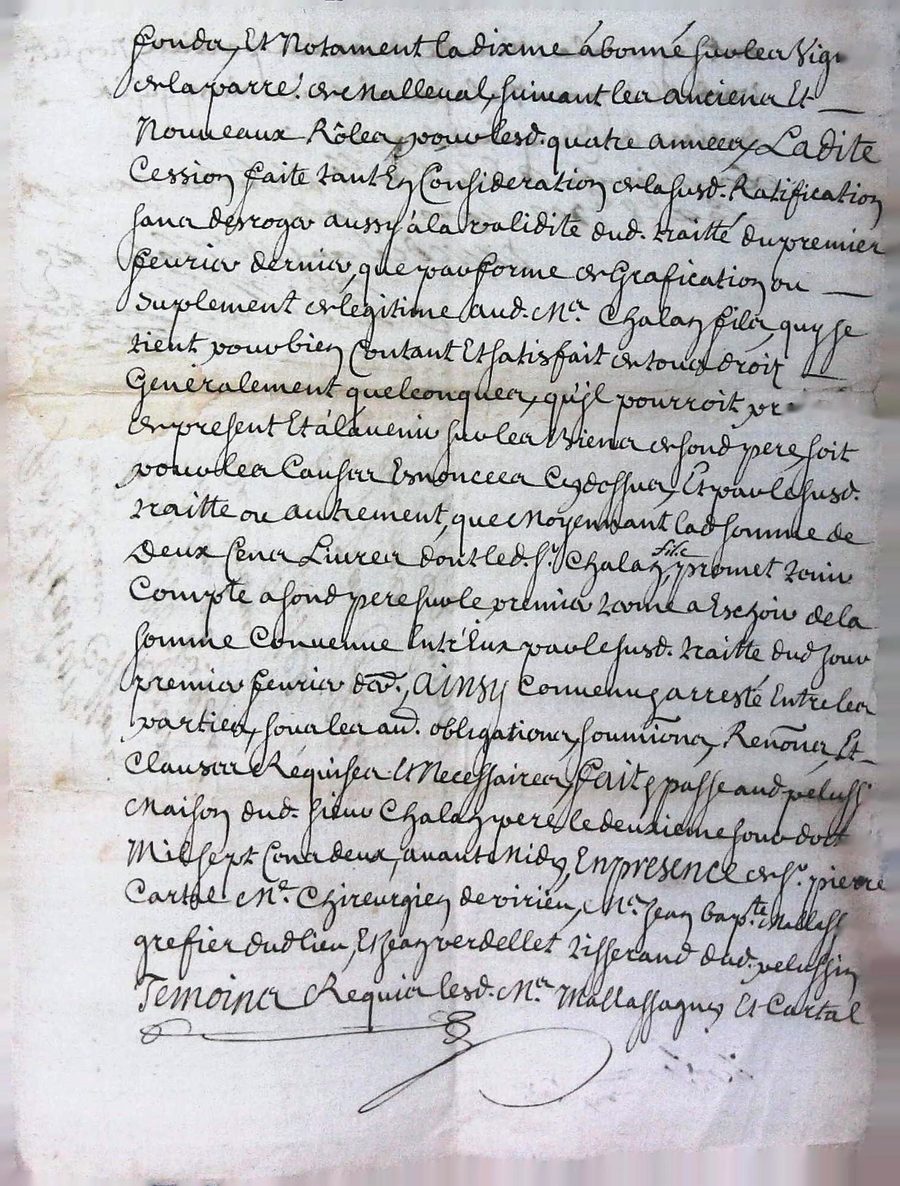 fonds, Et Notament la dixme abonné sur les Vig
de la parre. de Malleval, suivant les anciens Et
Nouveaux Rôles, pour lesd. quatre annees, La dite
Cession faite tant En Consideration de la susd. Ratification
sans desroger aussy à la validité dud. traitté du premier
fevrier dernier, que par forme de Grafication ou
Suplement de legitime aud. Mr. Chalas fils, quy se
tient pour bien Contant Et satisfait de tous droitz
Generalement quelconques, qu'jl pourroit pr
de present Et à lavenir sur les Biens de sond pere, soit
pour les Causes Enoncees Cy dessus, Et par le susd.
traitte ou autrement, que Moyennant lad somme de
Deux Cens Livres dont led. sr. Chalas fils, promet tenir
Compte a sond pere sur le premier terme a Escheoir de la
somme Convenue Entr'Eux par le susd. traitte dud jour
premier fevrier der., Ainsy Convenu & arresté Entre les
parties, sous les au. obligations, soumions, Renons, Et
Clauses Requises Et Necessaires, fait & passe aud pelussi
Maison dud. sieur Chalas pere le deuxieme jour doct
Mil sept Cens deux, avant Midy, En presence de sr. pierre
Cartal Mr. Chireurgien de virieu, Mr. Jean bapte. Mallass
grefier dud lieu, Et Jean verdellet tisserand dud. pelussin
Temoins Requis lesd. Mrs. Mallassagny Et Cartal